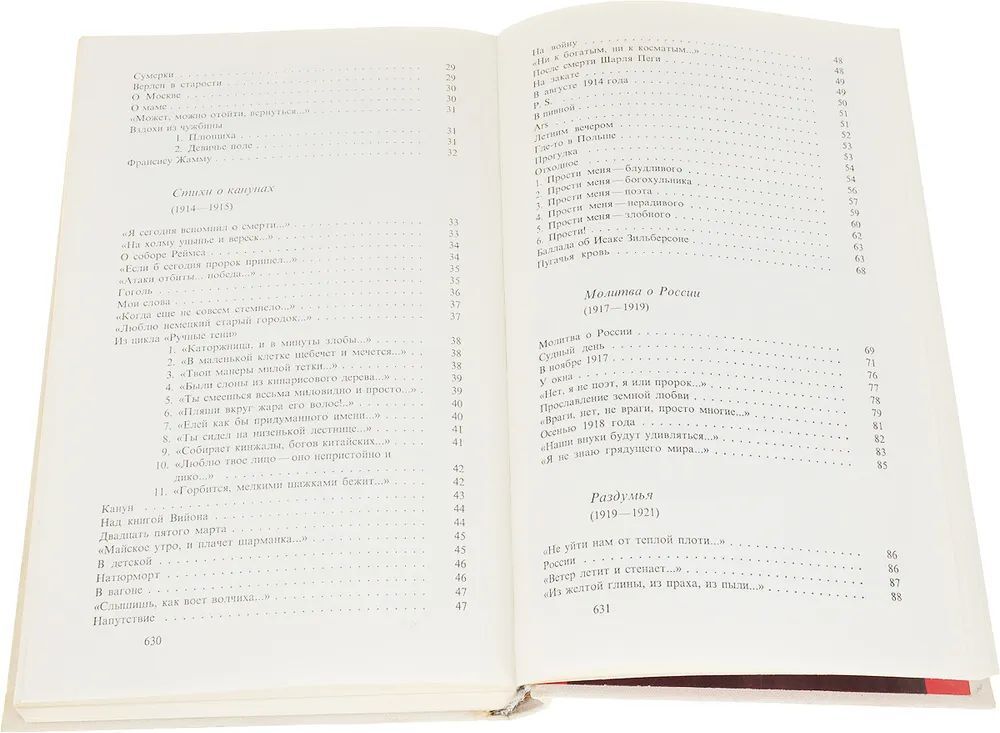 Сумерки 29
Верлен в старости 29
О Москве 30
О маме 30
«Может, можно отойти, вернуться...» 31
Вздохи из чужбины
1. Плющиха 31
2. Девичье поле 31
Франсису Жамму 32
Стихи о канунах
(1914—1915)
«Я сегодня вспомнил о смерти...» 33
«На холму унынье и вереск...» 33
О соборе Реймса 34
«Если б сегодня пророк пришел...» 34
«Атаки отбиты... победа...» 35
Гоголь 35
Мои слова 36
«Когда еще не совсем стемнело...» 37
«Люблю немецкий старый городок...» 37
Из цикла «Ручные тени»
1. «Каторжница, и в минуты злобы...» 38
2. «В маленькой клетке щебечет и мечется...» 38
3. «Твои манеры милой тетки...» 38
4. «Были слоны из кипарисового дерева...» 39
5. «Ты смеешься весьма миловидно и просто...» 39
6. «Пляши вкруг жара его волос!..» 40
7. «Елей как бы придуманного имени...» 40
8. «Ты сидел на низенькой лестнице...» 41
9. «Собирает кинжалы, богов китайских...» 41
10. «Люблю твое лицо—оно непристойно и
дико...» 42
11. «Горбится, мелкими шажками бежит...» 42
Канун 43
Над книгой Вийона 44
Двадцать пятого марта 44
«Майское утро, и плачет шарманка...» 45
В детской 45
Натюрморт 46
В вагоне 46
«Слышишь, как воет волчиха...» 47
Напутствие 47
630
На войну 48
«Ни к богатым, ни к косматым...» 48
После смерти Шарля Пеги 49
На закате 49
В августе 1914 года 50
P. S. 51
В пивной 51
Ars 52
Летним вечером 53
Где-то в Польше 53
Прогулка 54
Отходное 54
1. Прости меня—блудливого 56
2. Прости меня—богохульника 57
3. Прости меня—поэта 59
4. Прости меня—нерадивого 60
5. Прости меня—злобного 62
6. Прости! 63
Баллада об Исаке Зильберсоне 63
Пугачья кровь 68
Молитва о России
(1917—1919)
Молитва о России 69
Судный день 71
В ноябре 1917 76
У окна 77
«Нет, я не поэт, я или пророк...» 78
Прославление земной любви 79
«Враги, нет, не враги, просто многие...» 81
Осенью 1918 года 82
«Наши внуки будут удивляться...» 83
«Я не знаю грядущего мира...» 85
Раздумья
(1919—1921)
«Не уйти нам от теплой плоти...» 86
России 86
«Ветер летит и стенает...» 87
«Из желтой глины, из праха, из пыли...» 88
631